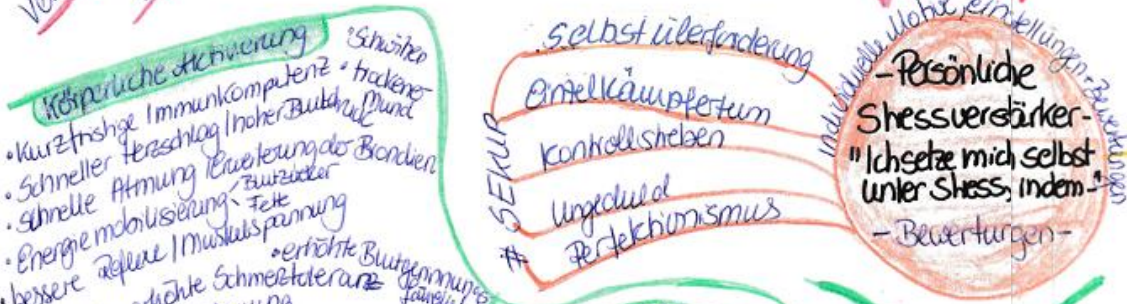 Körperliche Aktivierung
• Schwitzen
• trockener Mund
• Kurzfristige Immunkompetenz
• Schneller Herzschlag / hoher Blutdruck
• schnelle Atmung / Erweiterung der Bronchien
• Energiemobilisierung Blutzucker
Fette
• bessere Reflexe / Muskelspannung
• erhöhte Blutgerinnungs
erhöhte Schmerztoleranz
# SEKUP
• Selbstüberforderung
Einzelkämpfertum
Kontrollstreben
Ungeduld
Perfektionismus
Individuelle Motive, Einstellungen, Bewertungen
- Persönliche
Stressverstärker -
"Ich setze mich selbst
unter Stress, indem -"
- Bewertungen -